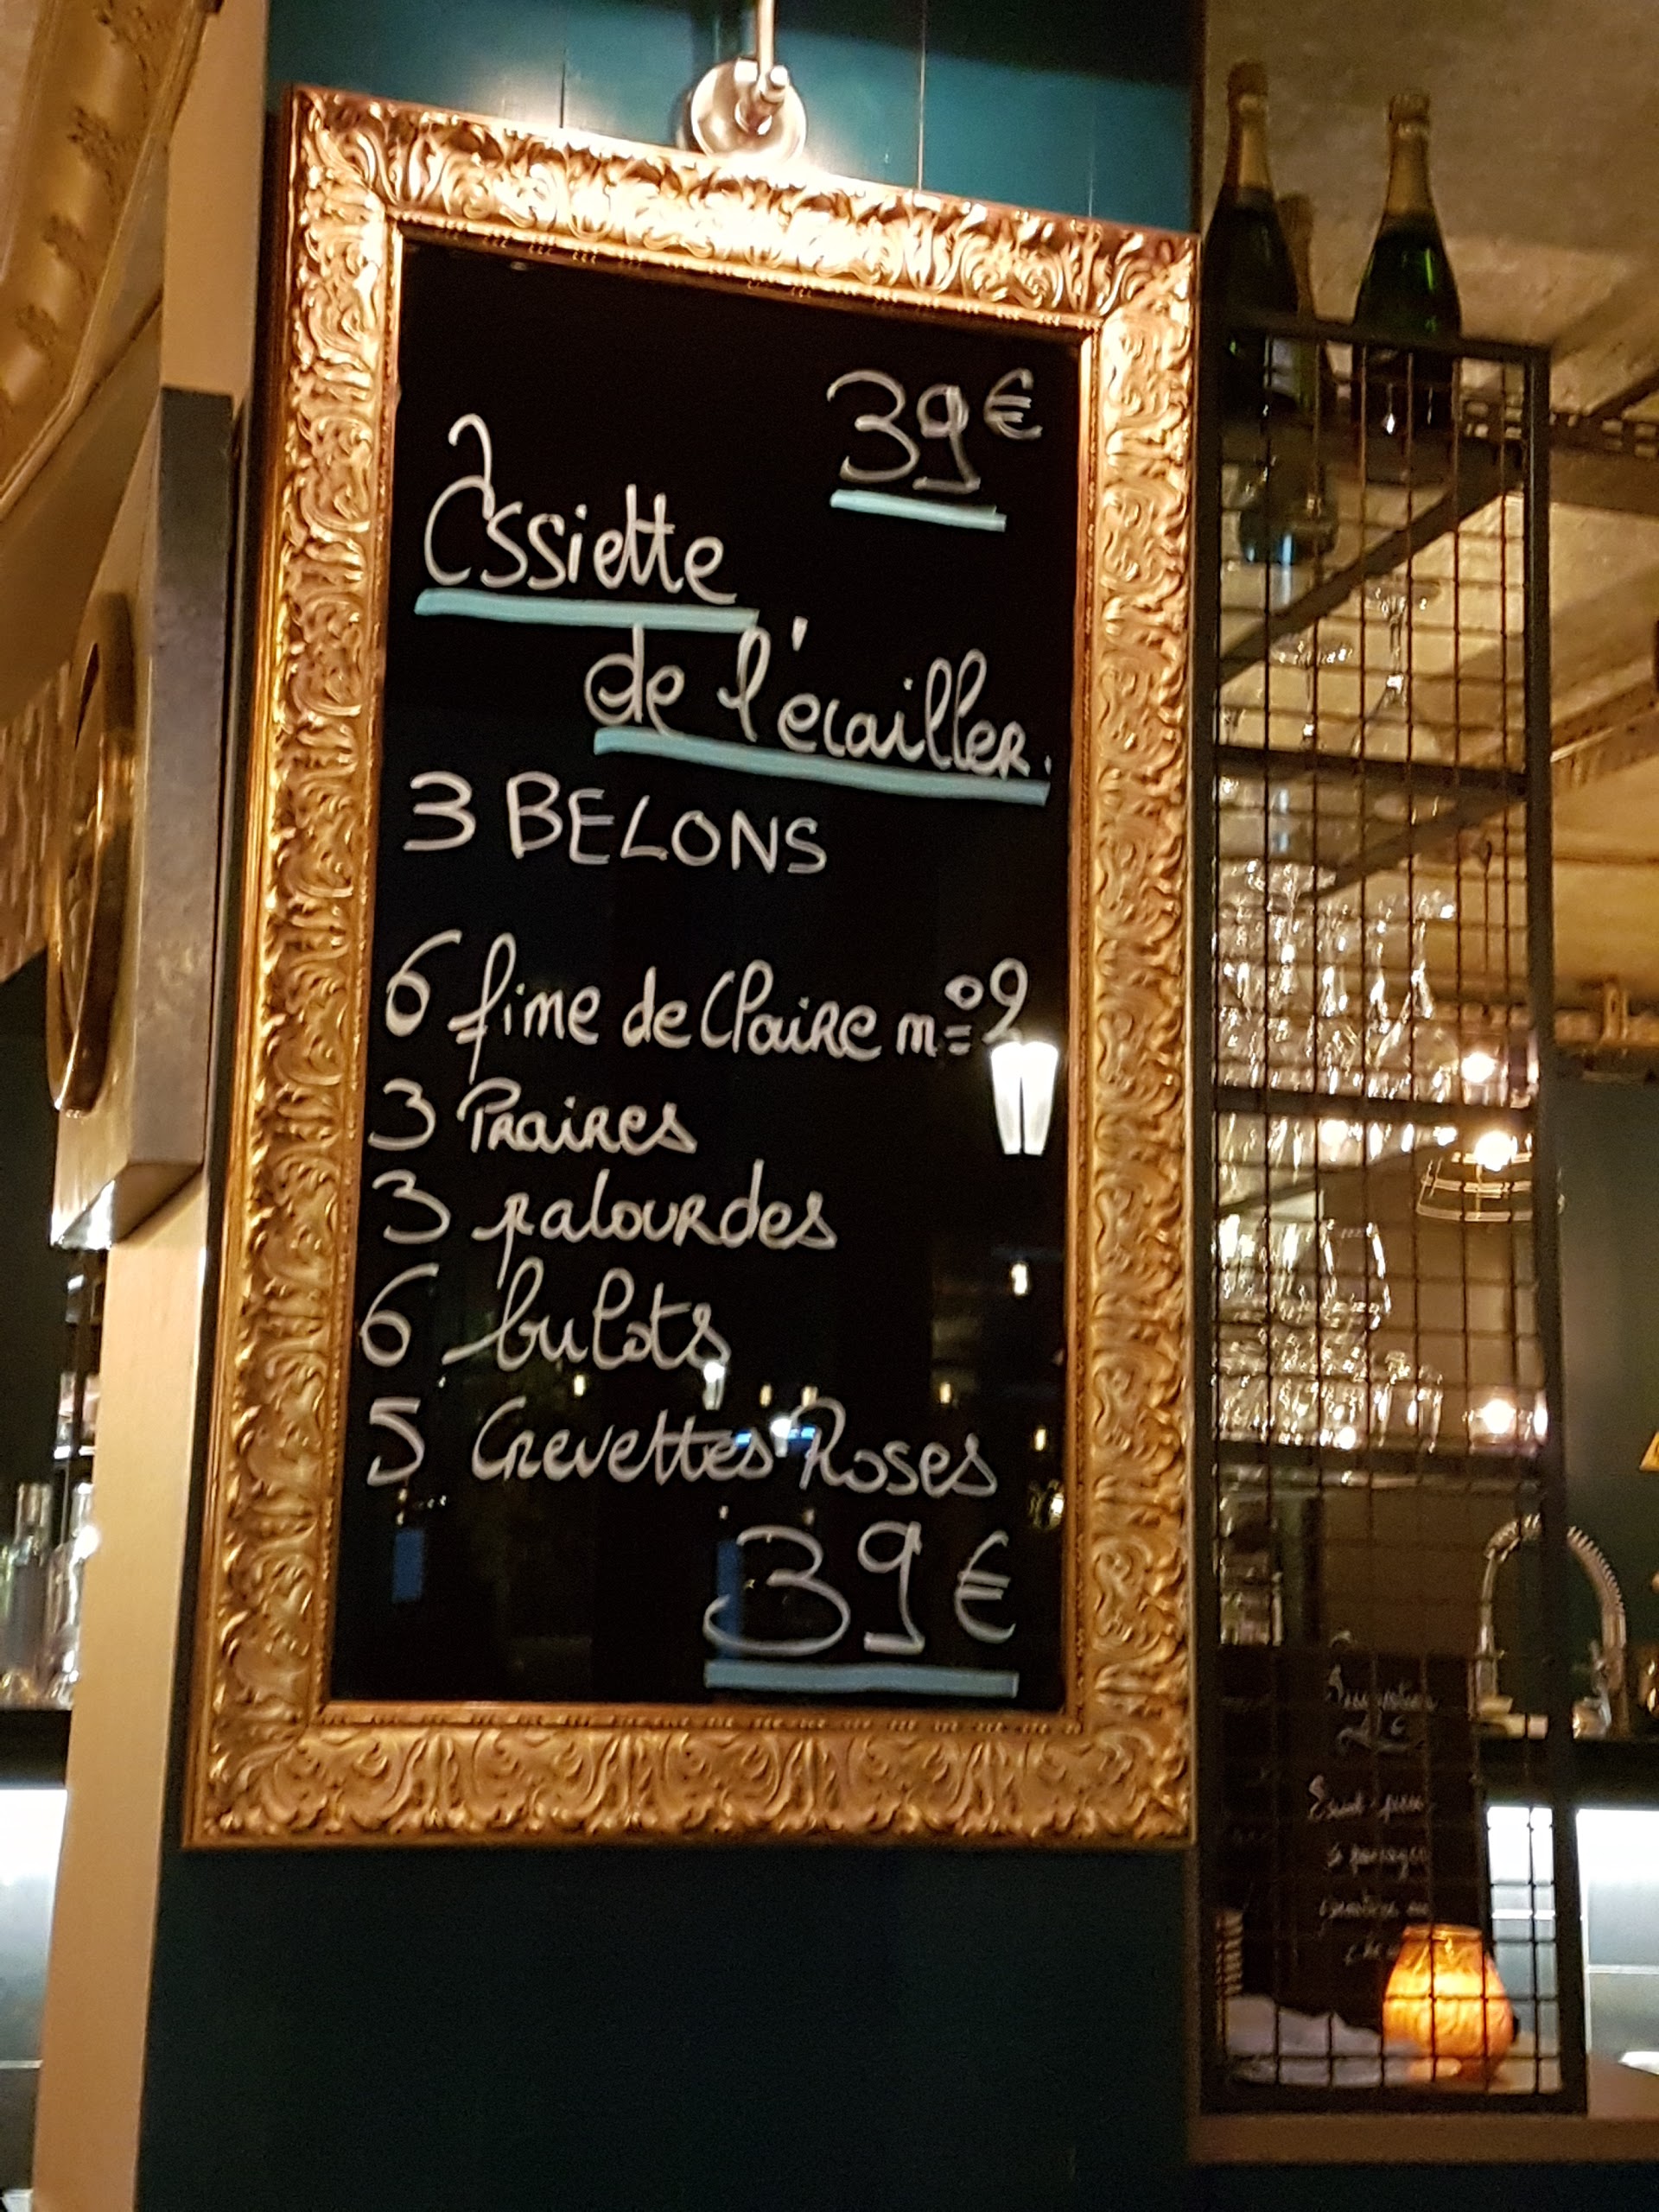 39€
Assiette
de l'ecailler.
3 BELONS
6 fine de Claire n°2
3 Praires
3 palourdes
6 bulots
5 Crevettes Roses
39€